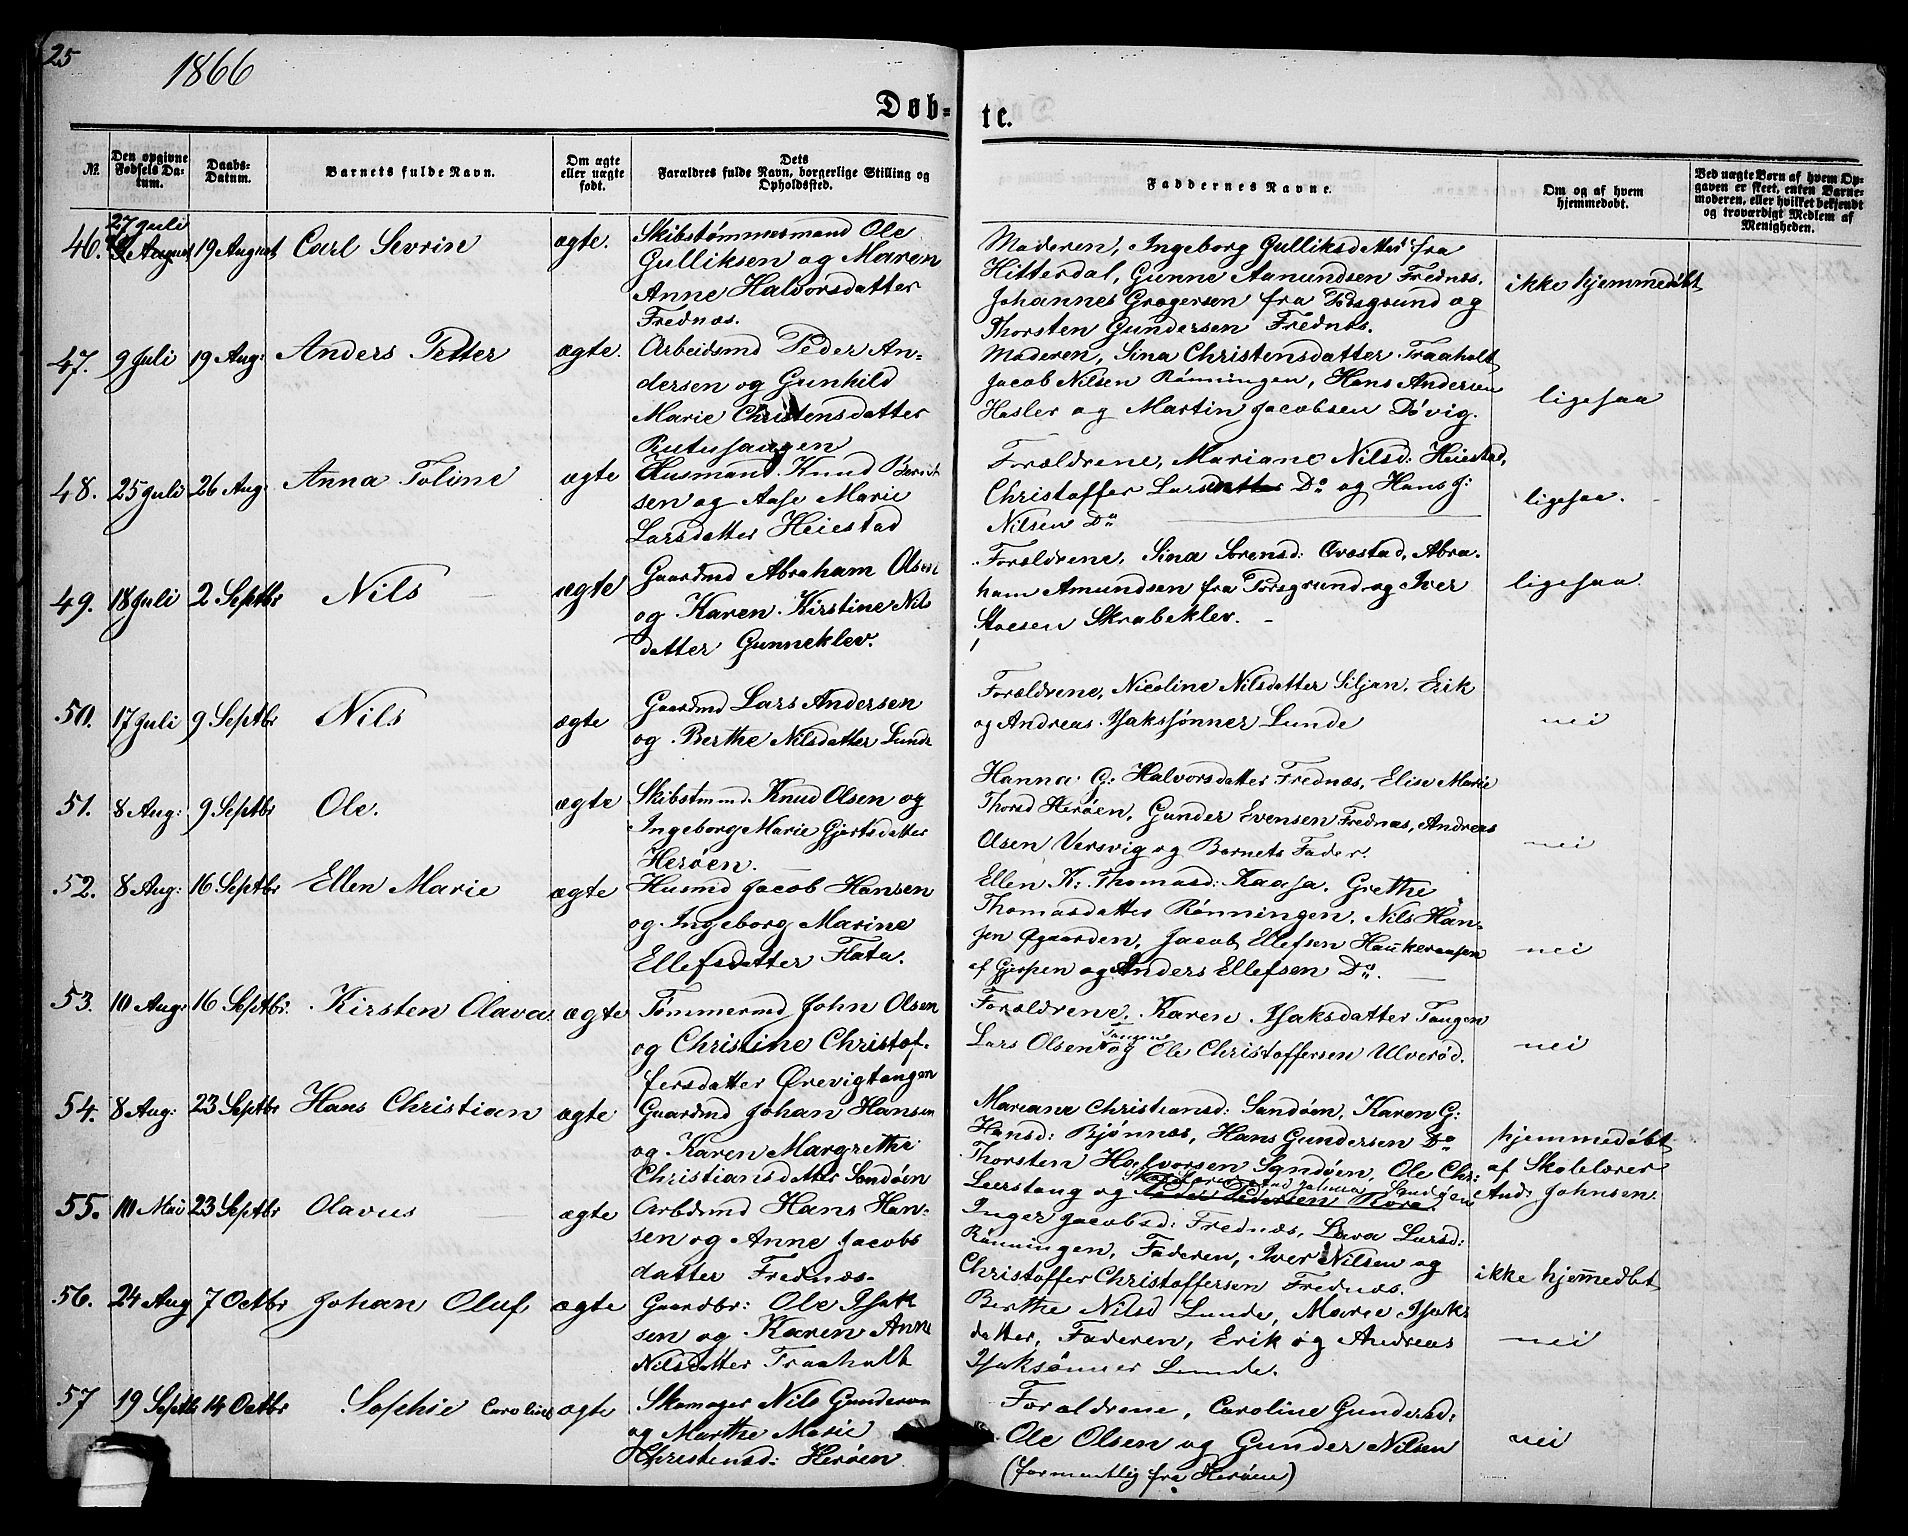 25
1866
Døb-
te.
No.
Den opgivne Fødsels Datum.
Daabs-Datum.
Barnets fulde Navn.
Om ægte eller uægte født.
Dets Forældres fulde Navn, borgerlige Stilling og Opholdsted.
Faddernes Navne.
Om og af hvem hjemmedøbt.
Ved uægte Børn af hvem Opgaven er skeet, enten Barnemoderen, eller hvilket bekjendt og troværdigt Medlem af Menigheden.
46. 27 Juli August 19 August Carl Sevrin ægte.
Skibstømmermand Ole
Gulliksen og Maren
Anne Halvorsdatter
Frednæs.
Moderen, Ingeborg Gulliksdatter fra
Hitterdal, Gunne Aamundsen Frednæs.
Johannes Gregersen fra Porsgrund og
Thorsten Gundersen Frednæs.
ikke hjemmedøbt
47. 9 Juli 19 Aug: Anders Petter ægte.
Arbeidsmd Peder An-
dersen og Gunhild
Marie Christensdatter
Moderen, Sina Christensdatter Traaholt
Jacob Nilsen Rønningen, Hans Andersen
Hasler og Martin Jacobsen Døvig.
ligesaa
48. 25 Juli 26 Aug: Anna Toline ægte
Husmand Knud Bernt
sen og Aase Marie
Larsdatter Heiestad
Forældrene, Mariane Nilsd: Heiestad,
Christoffer Larsdatter Do og Hans J:
Nilsen Do
ligesaa.
49. 18 Juli 2 Septbr Nils ægte
Gaardmd Abraham Olsen
og Karen Kirstine Nils
datter Gunneklev.
Forældrene, Sina Sørensd: Qvæstad, Abra-
ham Amundsen fra Porsgrund og Iver
Stoesen Skrabeklev.
ligesaa.
50. 17 Juli 9 Septbr Nils ægte
Gaardmd Lars Andersen
og Berthe Nilsdatter Lunde
Forældrene, Nicoline Nilsdatter Siljan, Erik
og Andreas Isakssønner Lunde
nei
51. 8 Aug: 9 Septbr Ole. ægte
Skibstmmd. Knud Olsen og
Ingeborg Marie Gjertsdatter
Herøen.
Hanna G: Halvorsdatter Frednæs, Elise Marie
Thorsd Herøen, Gunder Evensen Frednæs, Andreas
Olsen Versvig og Barnets Fader.
nei
52. 8 Aug: 16 Septbr Ellen Marie ægte
Husmd Jacob Hansen
og Ingeborg Marine
Ellefsdatter Flata.
Ellen K: Thomasd: Kaasa, Grethe
Thomasdatter Rønningen, Nils Han-
sen Øgaarden, Jacob Ellefsen Haukeraasen
af Gjerpen og Anders Ellefsen Do.
nei
53. 10 Aug: 16 Septbr. Kirsten Olava ægte
Tømmermd John Olsen
og Christine Christof-
fersdatter Ørevigtangen
Forældrene, Karen Isaksdatter Tangen
Lars Olsen Tangen og Ole Christoffersen Ulverød.
nei
54. 8 Aug: 23 Septbr Hans Christian ægte
Gaardmd Johan Hansen
og Karen Margrethe
Christiansdatter Sandøen
Mariane Christiansd: Sandøen, Karen G:
Hansd: Bjønnes, Hans Gundersen Do
Thorsten Halvorsen Sandøen, Ole Chr:
Leerstang og Skolelærer And Johnsen Peder Pedersen Mørk.
hjemmedøbt
af Skolelærer
And: Johnsen
55. 10 Mai 23 Septbr Olavus ægte
Arbdsmd Hans Han-
sen og Anne Jacobs
datter Frednæs.
Inger Jacobsd: Frednæs, Lava Larsd:
Rønningen, Faderen, Iver Nilsen og
Christoffer Christoffersen Frednæs.
ikke hjemmedbt
56. 24 Aug 7 Octbr Johan Oluf ægte
Gaardbr: Ole Isak
sen og Karen Anne
Nilsdatter Traaholt
Berthe Nilsd Lunde, Maree Isaks
datter, Faderen, Erik og Andreas
Isaksønner Lunde.
nei
57 19 Septb 14 Octbr Sophie Caroline ægte
Skomager Nils Gundersen
og Marthe Marie
Christensd: Herøen
Forældrene, Caroline Gundersd:
Ole Olsen og Gunder Nilsen
(formentlig fra Herøen)
nei